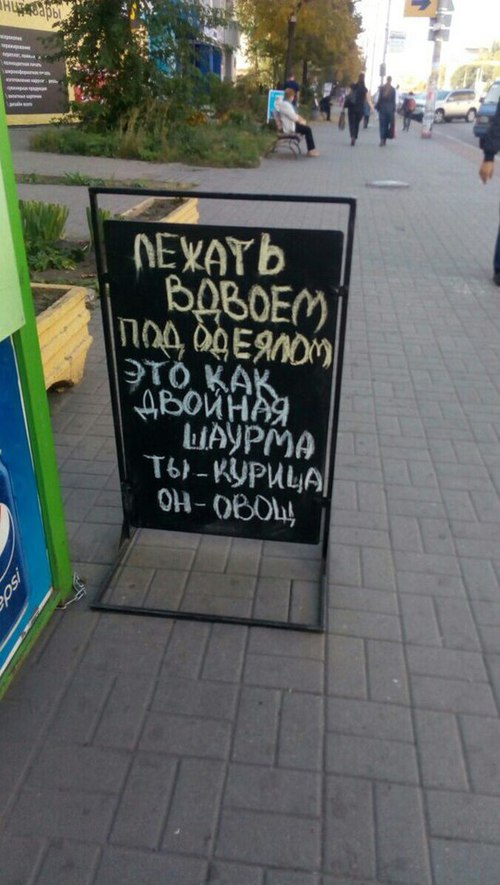 ЛЕЖАТЬ
ВДВОЕМ
ПОД ОДЕЯЛОМ
ЭТО КАК
ДВОЙНАЯ
ШАУРМА
ТЫ - КУРИЦА
ОН - ОВОЩ
pepsi